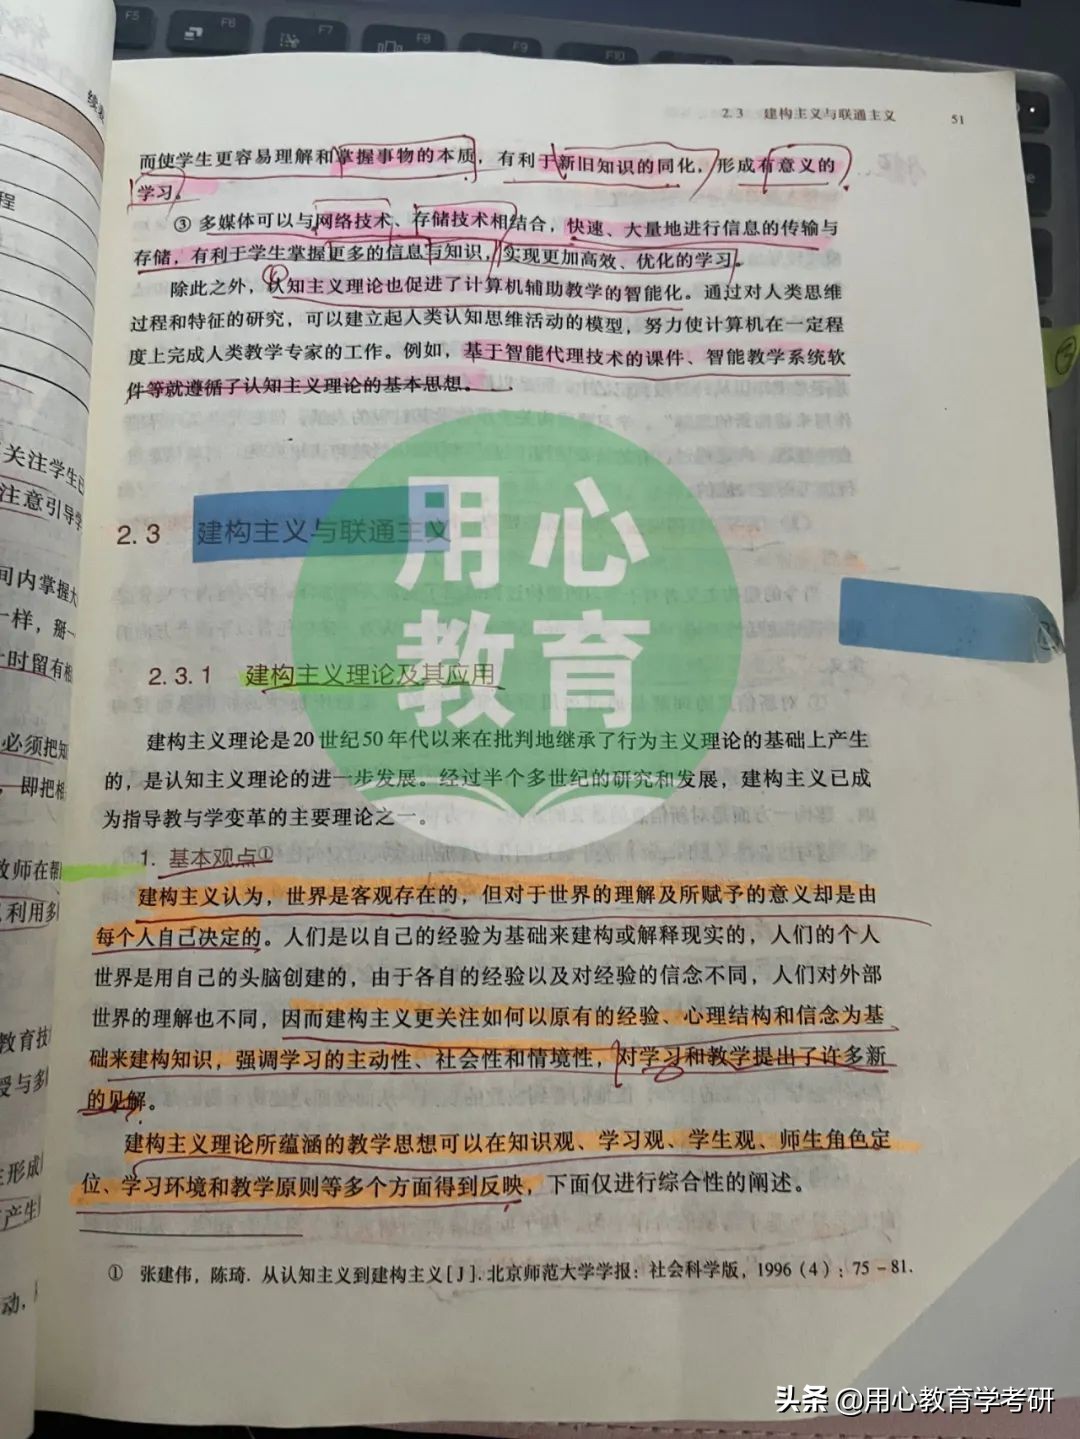 F5
F6
F7
F8
F9
F10
2.3 建构主义与联通主义 51
而使学生更容易理解和掌握事物的本质，有利于新旧知识的同化，形成有意义的
学习。
③ 多媒体可以与网络技术、存储技术相结合，快速、大量地进行信息的传输与
存储，有利于学生掌握更多的信息与知识，实现更加高效、优化的学习。
除此之外，认知主义理论也促进了计算机辅助教学的智能化。通过对人类思维
过程和特征的研究，可以建立起人类认知思维活动的模型，努力使计算机在一定程
度上完成人类教学专家的工作。例如，基于智能代理技术的课件、智能教学系统软
件等就遵循了认知主义理论的基本思想。
2.3 建构主义与联通主义
用心
教育
2.3.1 建构主义理论及其应用
建构主义理论是20世纪50年代以来在批判地继承了行为主义理论的基础上产生
的，是认知主义理论的进一步发展。经过半个多世纪的研究和发展，建构主义已成
为指导教与学变革的主要理论之一。
1. 基本观点①
建构主义认为，世界是客观存在的，但对于世界的理解及所赋予的意义却是由
每个人自己决定的。人们是以自己的经验为基础来建构或解释现实的，人们的个人
世界是用自己的头脑创建的，由于各自的经验以及对经验的信念不同，人们对外部
世界的理解也不同，因而建构主义更关注如何以原有的经验、心理结构和信念为基
础来建构知识，强调学习的主动性、社会性和情境性，对学习和教学提出了许多新
的见解。
建构主义理论所蕴涵的教学思想可以在知识观、学习观、学生观、师生角色定
位、学习环境和教学原则等多个方面得到反映，下面仅进行综合性的阐述。
① 张建伟，陈琦. 从认知主义到建构主义[J]. 北京师范大学学报：社会科学版，1996（4）：75-81.
程
关注学生已
注意引导学
间内掌握大
一样，掰一
上时留有相
必须把知
，即把相
教师在帮
利用多
教育技
授与多
形成
产生
动，
头条 @用心教育学考研